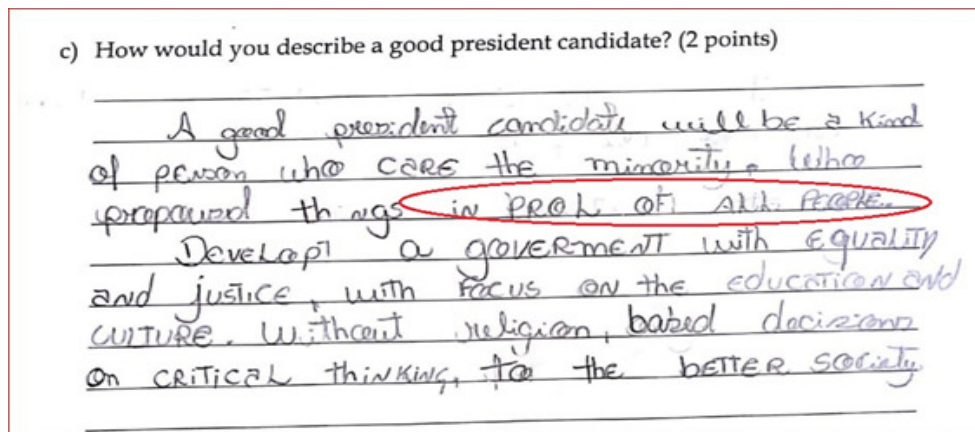 c) How would you describe a good president candidate? (2 points)
A good president candidate will be a kind
of person who CARE the minority. Who
propound things in PROL OF ALL PEOPLE.
Develop a goverment with Equality
and justice, with Focus ON the education and
culture. Without religion, based decisions
on critical thinking, to the better society